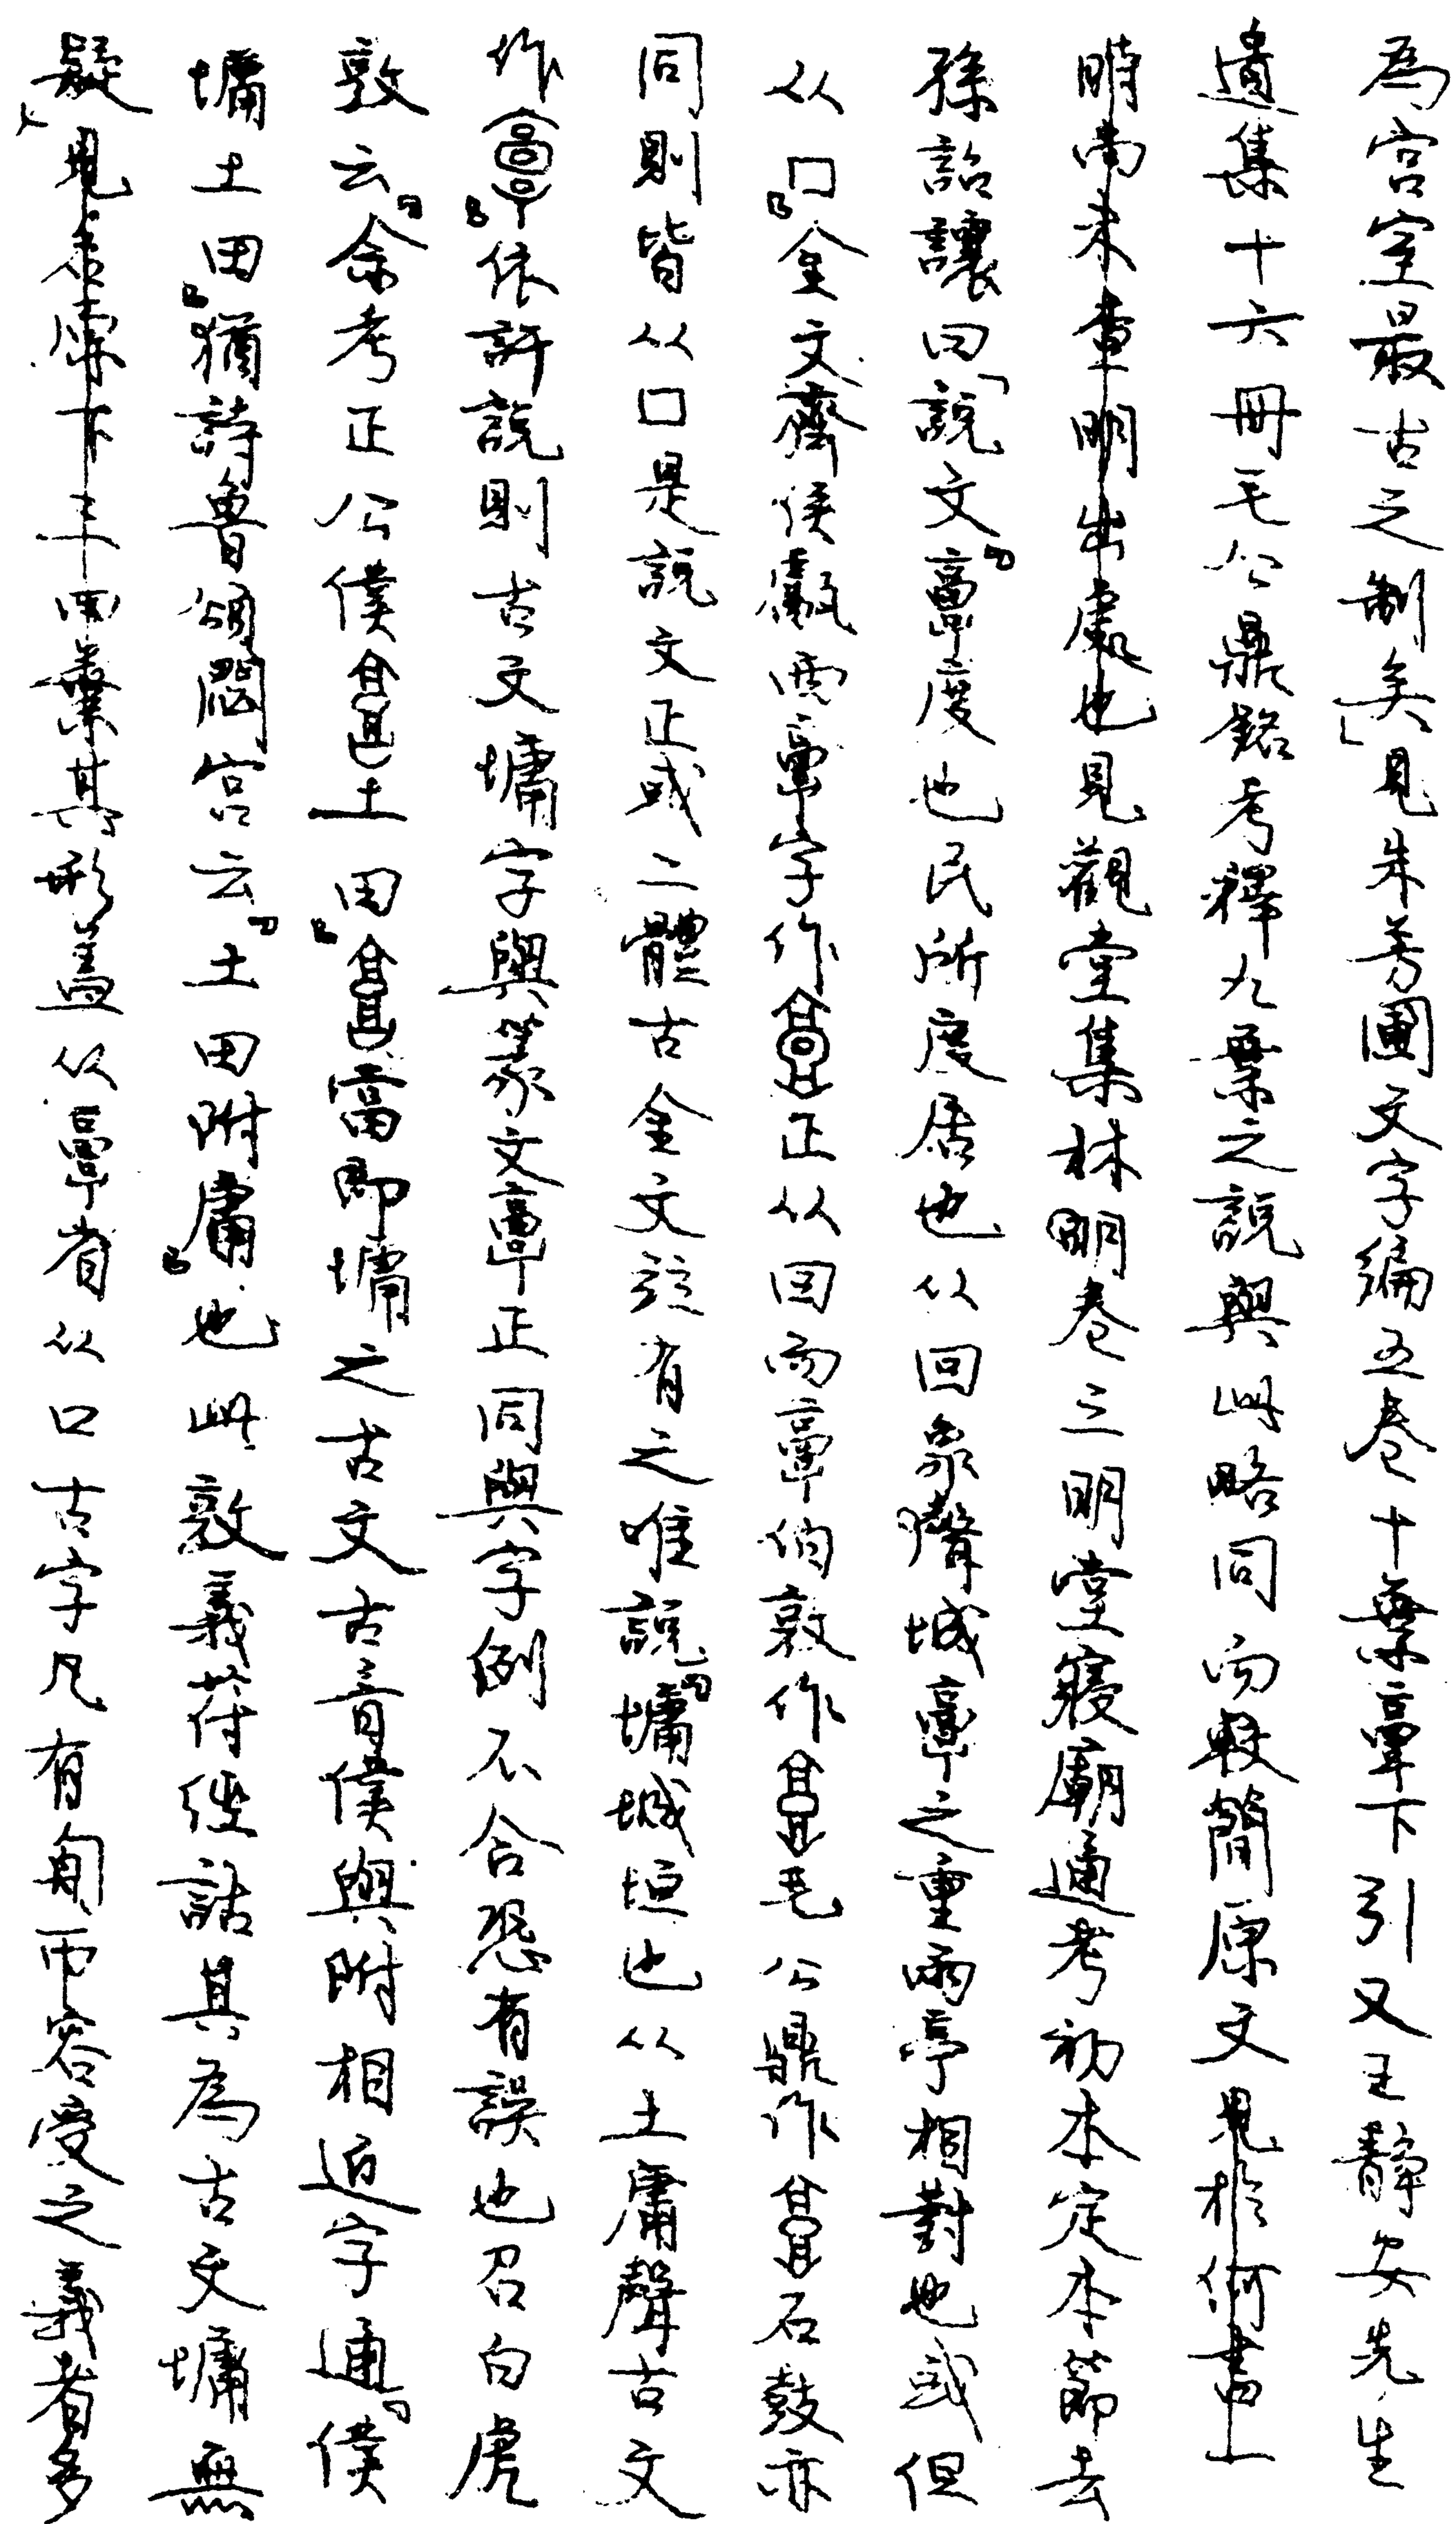 為宮室最古之制矣」見朱芳圃文字編五卷十葉𩫖下引又王靜安先生
遺集十六冊毛公鼎銘考釋九葉之說與此略同而較簡原文見於何書上
時尚未查明出處也見觀堂集林卷三明堂寢廟通考初本定本節去
孫詒讓曰「說文『𩫖度也民所度居也从回象城𩫖之重兩亭相對也或但
从口』金文齊侯甗𩫖字作正从回而𩫖伯敦作毛公鼎作石鼓亦
同則皆从口是說文正或二體古金文竝有之唯說『墉城垣也从土庸聲古文
作𩫖』依許說則古文墉字與篆文𩫖正同與字例不合恐有誤也召白虎
敦云『余考正公僕土田』當即墉之古文古音僕與附相近字通『僕
墉土田』猶詩魯頌閟宮云『土田附庸』也此敦義符經詁其為古文墉無
疑」其形蓋从𩫖省从口古字凡有匍帀容受之義者多